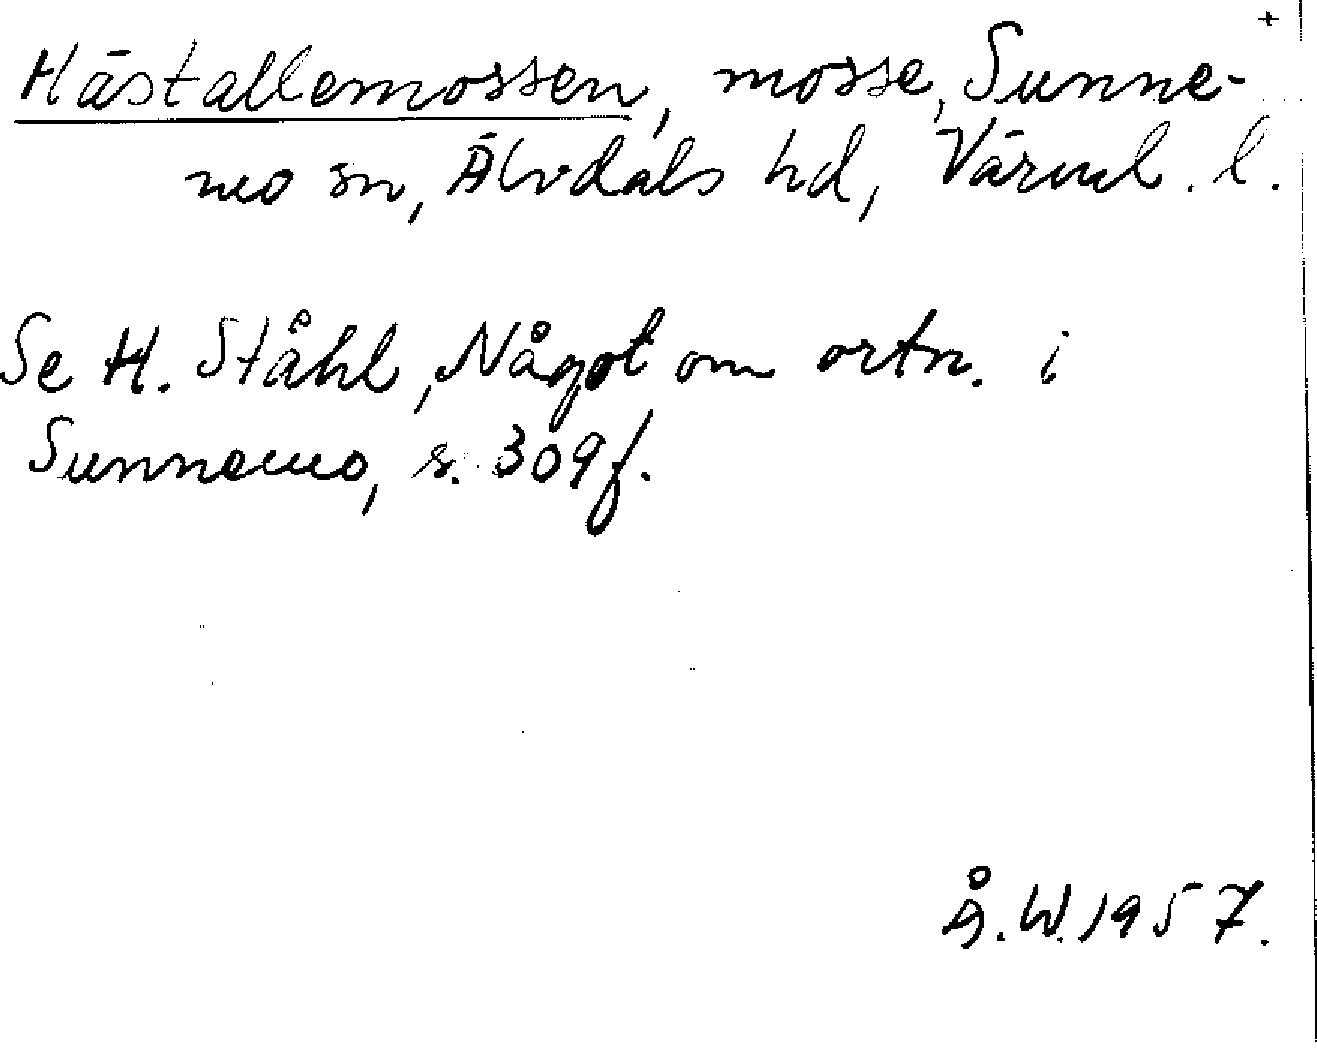 +
Hästallemossen, mosse, Sunne-
mo sn, Älvdals hd, Värml. l.
Se H. Ståhl, Något om ortn. i
Sunnemo, s. 309 f.
Å.W. 1957.